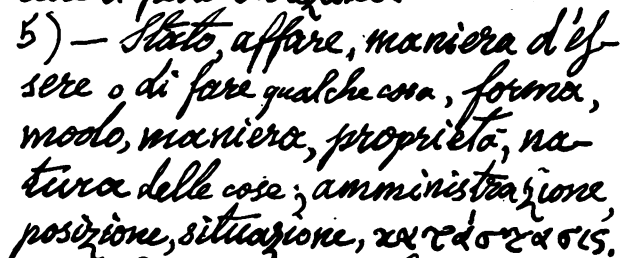 5) — Stato, affare, maniera d'és-
sere o di fare qualche cosa, forma,
modo, maniera, proprietà, na-
tura delle cose; amministrazione,
posizione, situazione, κατάστασις.